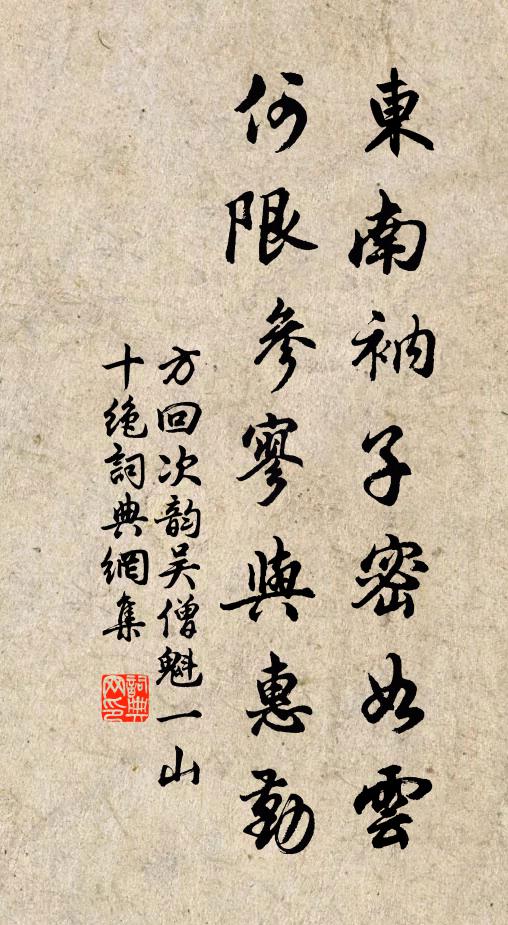 東南衲子密如雲
何限參寥與惠勤
方回次韵吴僧魁一山
十绝詞典網集
詞典
网印